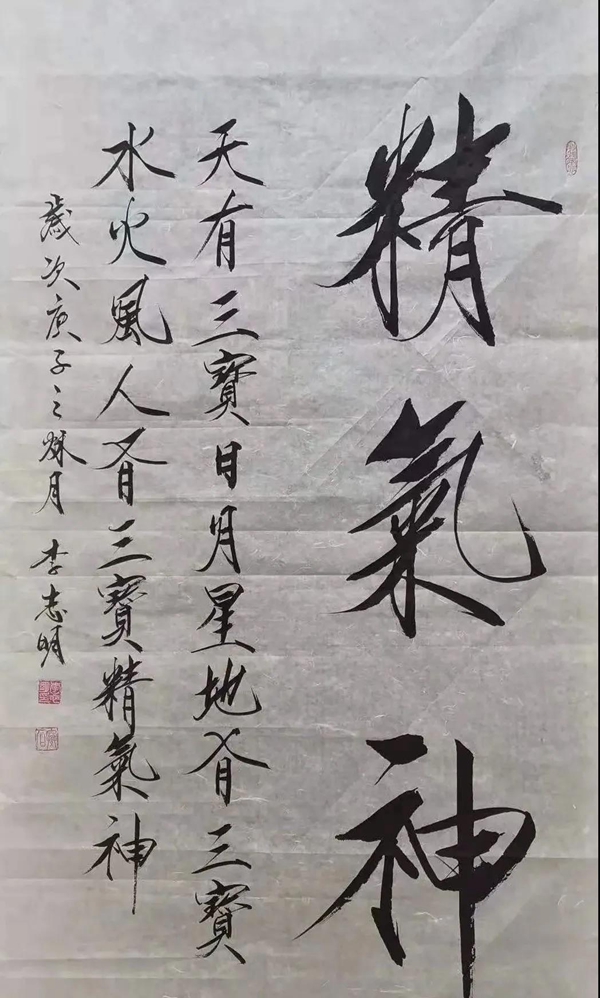 精氣神
天有三寶日月星地有三寶
水火風人有三寶精氣神
歲次庚子之秋月 李志明